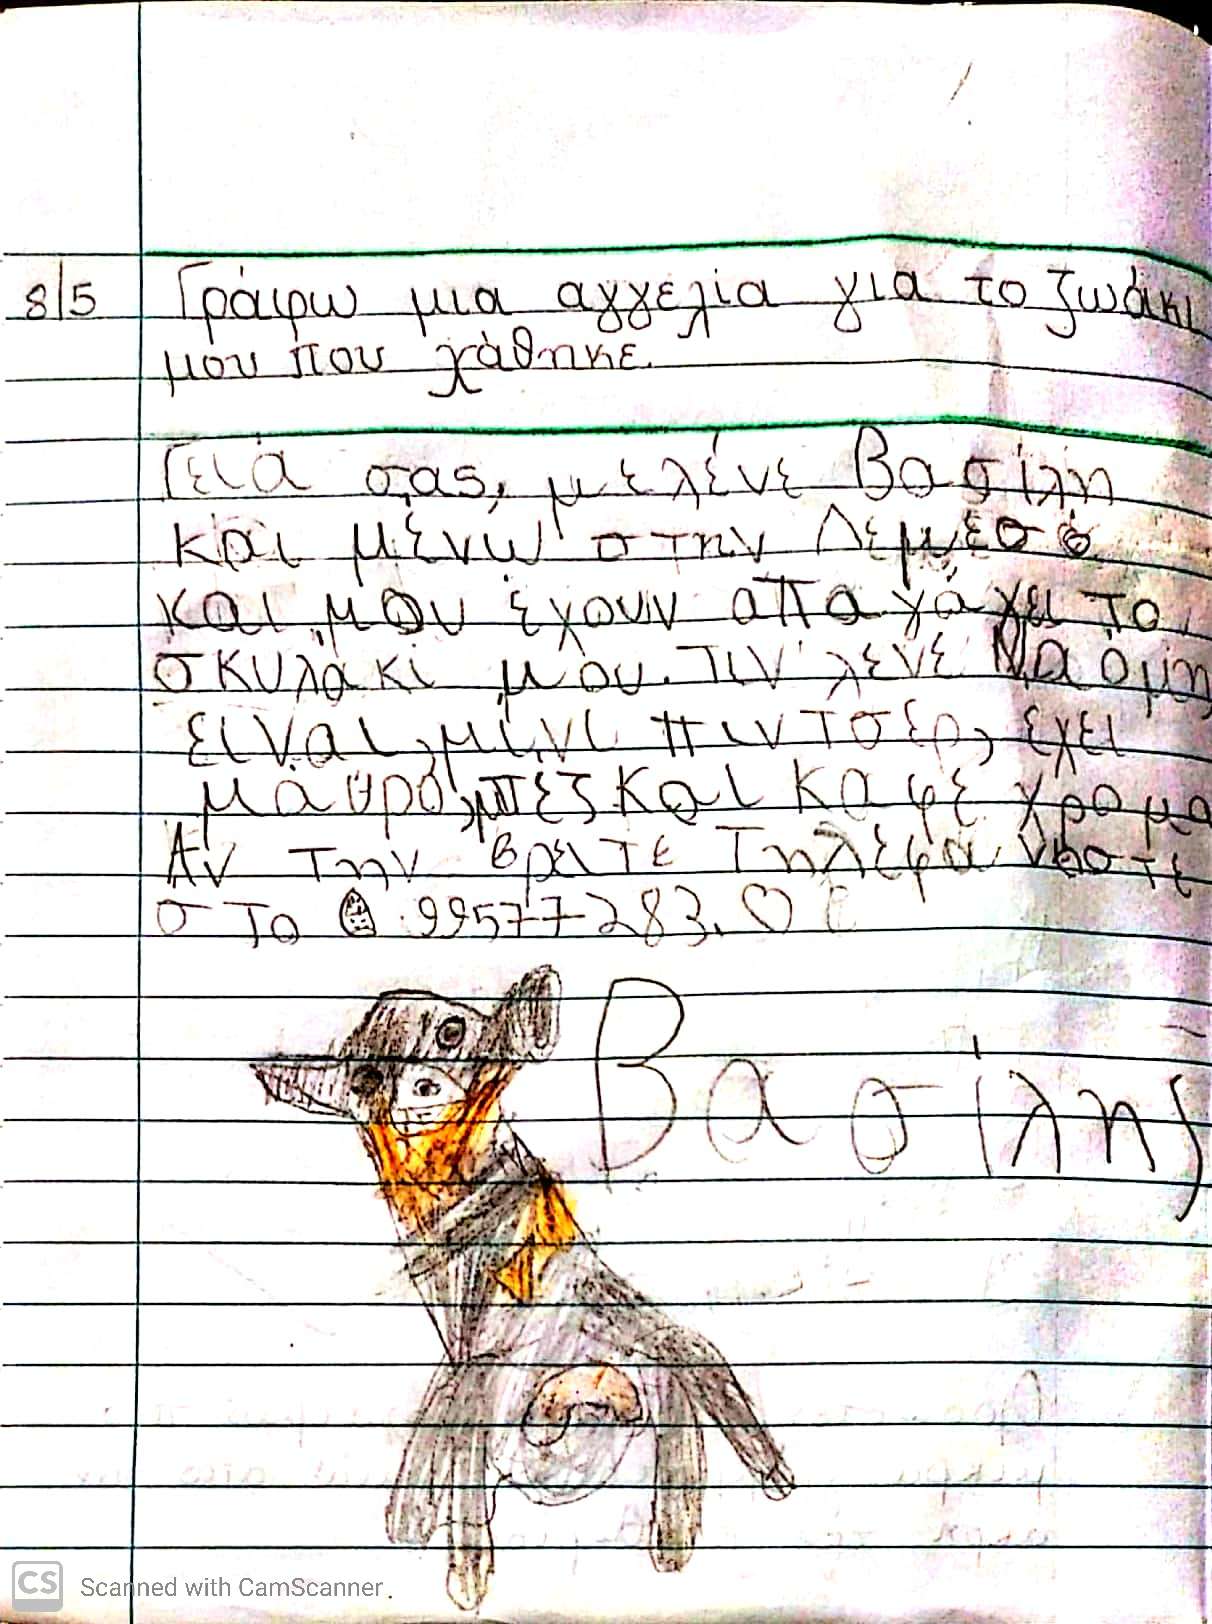 8/5 Γράφω μια αγγελία για το ζωάκι
μου που χάθηκε.
Γειά σας, με λένε Βασίλη
και μένω στην Λεμεσό
και μου έχουν απαγάγει το
σκυλάκι μου. Τιν λένε Ναόμη
είναι μίνι πιντσερ, έχει
μαύρο, μπεζ και καφέ χρομα
Αν την βρείτε τηλεφονίστε
στο 99577283. ♡
Βασίλης
CS Scanned with CamScanner